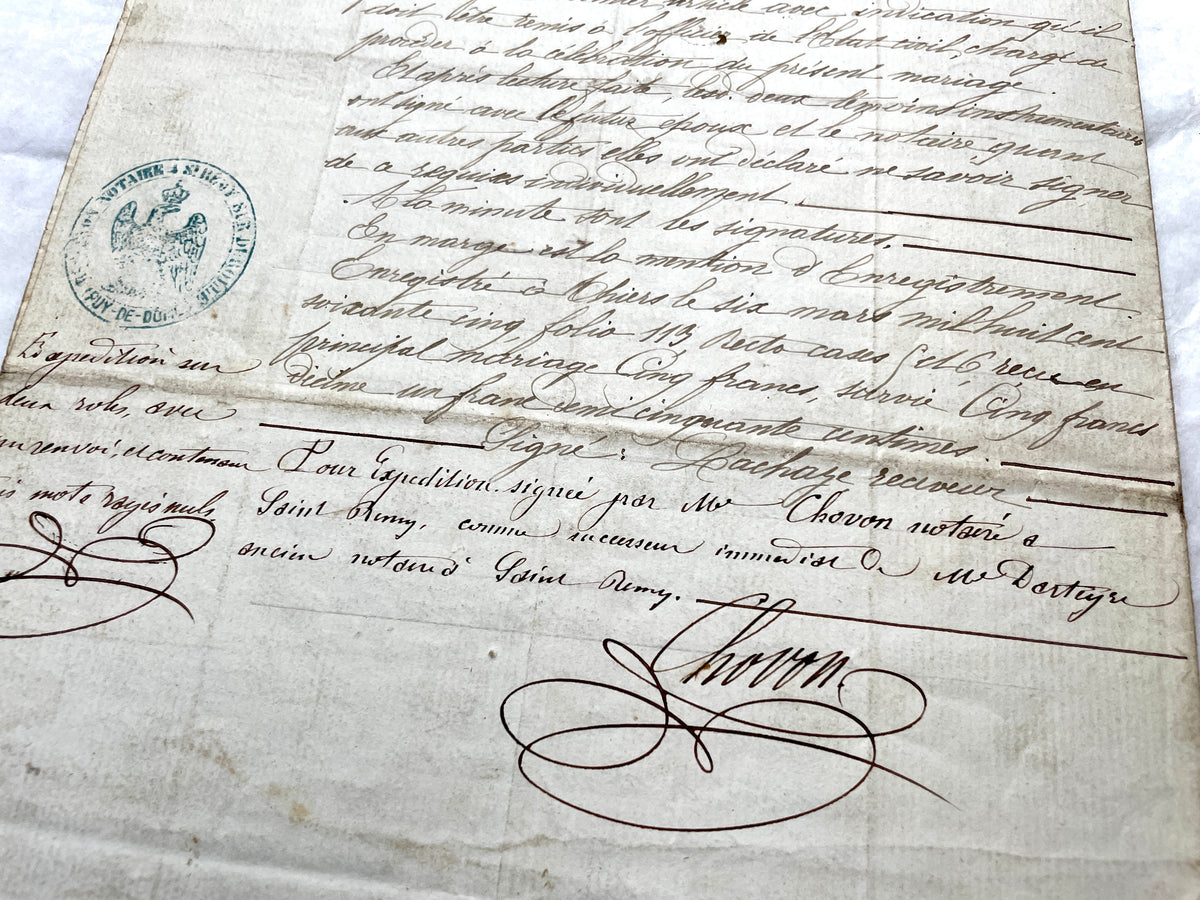 article avec indication qu'il
doit être remis à l'officier de l'État civil, chargé de
procéder à la célébration du présent mariage.
Et après lecture faite, les deux témoins instrumentaires
ont signé avec le futur époux et le notaire, quant
aux autres parties elles ont déclaré ne savoir signer
de ce requises individuellement
A la minute sont les signatures.
En marge est la mention d'Enregistrement.
Enregistré à Thiers le six mars mil huit cent
soixante cinq folio 113 Recto cases 5 et 6 reçu en
principal mariage Cinq francs, survie Cinq francs
dixième un franc demi cinquante centimes.
Signé : Lachaze receveur
Pour Expédition signée par Me Chovon notaire à
Saint Remy, comme successeur immédiat De Me Darteyre
ancien notaire à Saint Remy.
Chovon
NOTAIRE A St REMY SUR DUROLLE
(PUY-DE-DOME)
Expédition sur
deux roles, avec
un renvoi, et contenant
mots rayés nuls.